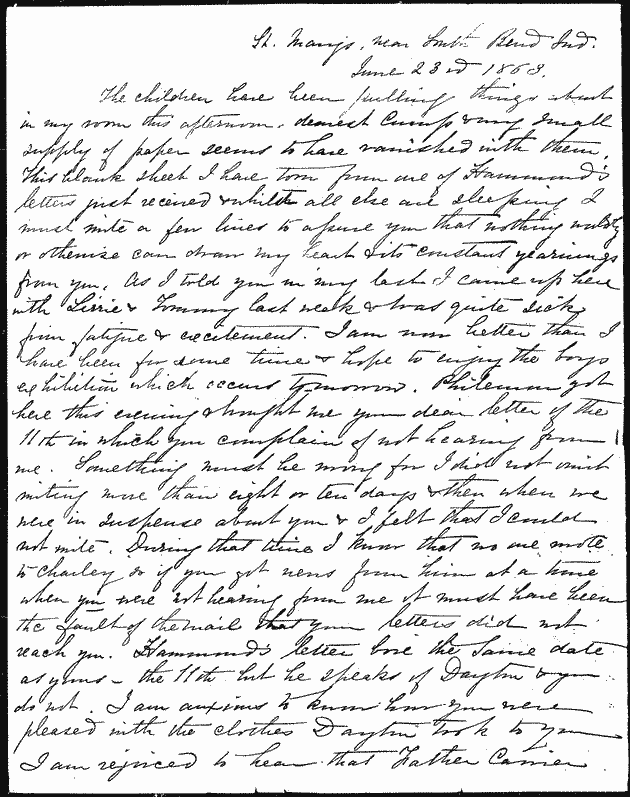 St. Marys, near South Bend Ind.
June 23rd 1863.
The children have been pulling things about
in my room this afternoon, dearest Cump & my small
supply of paper seems to have vanished with them.
This blank sheet I have torn from one of Hammond's
letters just received & whilst all else are sleeping I
must write a few lines to assure you that nothing
or otherwise can draw my heart & its constant yearnings
from you. As I told you in my last I came up here
with Lizzie & Tommy last week & was quite sick
from fatigue & excitement. I am now better than I
have been for some time & hope to enjoy the boys
exhibition which occurs tomorrow. Philemon got
here this evening & brought me your dear letter of the
11th in which you complain of not hearing from
me. Something must be wrong for I did not omit
writing more than eight or ten days & then when we
were in suspense about you & I felt that I could
not write. During that time I know that no one wrote
to Charley so if you got news from him at a time
when you were not hearing from me it must have been
the fault of the mail that your letters did not
reach you. Hammond's letter bore the same date
as yours - the 11th but he speaks of Dayton & you
do not. I am anxious to know how you were
pleased with the clothes Dayton took to you
I am rejoiced to hear that Father Carrier